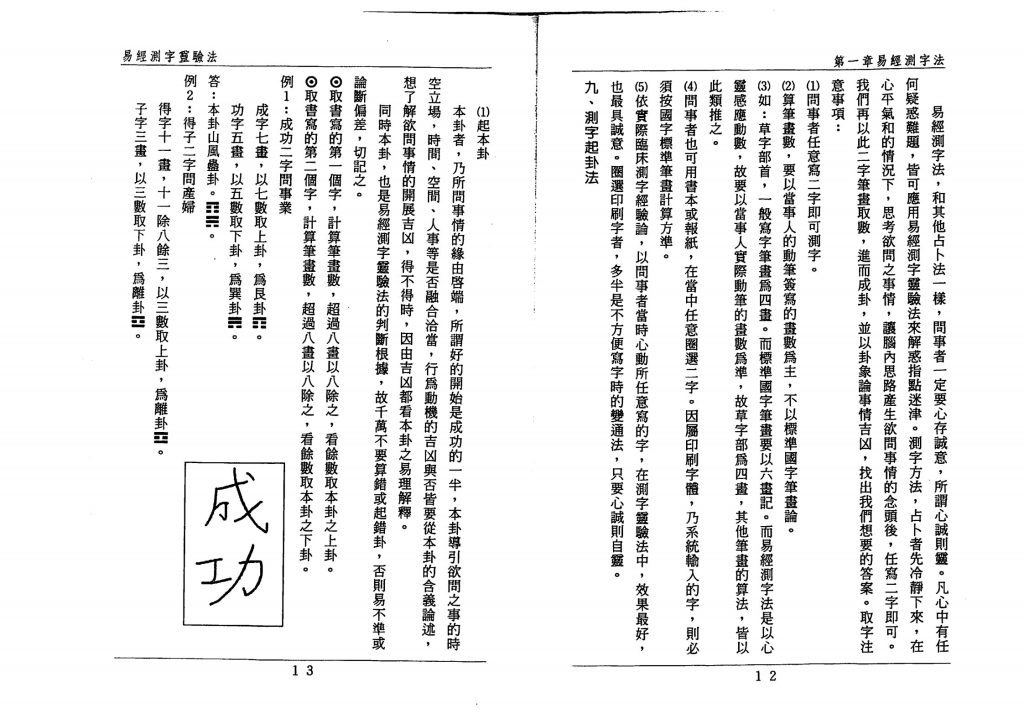 第一章易經測字法
易經測字法，和其他占卜法一樣，問事者一定要心存誠意，所謂心誠則靈。凡心中有任
何疑惑難題，皆可應用易經測字靈驗法來解惑指點迷津。測字方法，占卜者先冷靜下來，在
心平氣和的情況下，思考欲問之事情，讓腦內思路產生欲問事情的念頭後，任寫二字即可。
我們再以此二字筆畫取數，進而成卦，並以卦象論事情吉凶，找出我們想要的答案。取字注
意事項：
⑴問事者任意寫二字即可測字。
⑵算筆畫數，要以當事人的動筆簽寫的畫數為主，不以標準國字筆畫論。
⑶如：草字部首，一般寫字筆畫為四畫。而標準國字筆畫要以六畫記。而易經測字法是以心
靈感應動數，故要以當事人實際動筆的畫數為準，故草字部為四畫，其他筆畫的算法，皆以
此類推之。
⑷問事者也可用書本或報紙，在當中任意圈選二字。因屬印刷字體，乃系統輸入的字，則必
須按國字標準筆畫計算方準。
⑸依實際臨床測字經驗論，以問事者當時心動所任意寫的字，在測字靈驗法中，效果最好，
也最具誠意。圈選印刷字者，多半是不方便寫字時的變通法，只要心誠則自靈。
九、測字起卦法
12
易經測字靈驗法
⑴起本卦
本卦者，乃所問事情的緣由啓端，所謂好的開始是成功的一半，本卦導引欲問之事的時
空立場，時間、空間、人事等是否融合洽當，行為動機的吉凶與否皆要從本卦的含義論述，
想了解欲問事情的開展吉凶，得不得時，因由吉凶都看本卦之易理解釋。
同時本卦，也是易經測字靈驗法的判斷根據，故千萬不要算錯或起錯卦，否則易不準或
論斷偏差，切記之。
◎取書寫的第一個字，計算筆畫數，超過八畫以八除之，看餘數取本卦之上卦。
◎取書寫的第二個字，計算筆畫數，超過八畫以八除之，看餘數取本卦之下卦。
例1：成功二字問事業
成字七畫，以七數取上卦，為艮卦☶。
功字五畫，以五數取下卦，為巽卦☴。
答：本卦山風蠱卦。☶☴。
例2：得子二字問產婦
得字十一畫，十一除八餘三，以三數取上卦，為離卦☲。
子字三畫，以三數取下卦，為離卦☲。
成
功
13